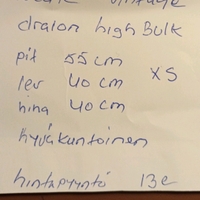 vintage
dralon high Bulk
pit 55 cm
XS
lev 40 cm
hiha 40 cm
hyväkuntoinen
hintapyyntö 13e